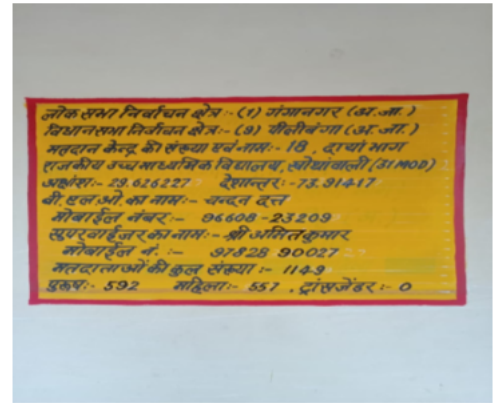 लोकसभा निर्वाचन क्षेत्र :- (1) गंगानगर (अ.जा.)
विधानसभा निर्वाचन क्षेत्र :- (9) पीलीबंगा (अ.जा.)
मतदान केन्द्र की संख्या एवं नाम :- 18, दायां भाग
राजकीय उच्च माध्यमिक विद्यालय, (31 MOD)
अक्षांश:- 29.626227 देशान्तर:- 73.91417
बी.एल.ओ. का नाम :- चन्दन दत्त
मोबाईल नंबर :- 96608-23209
सुपरवाईजर का नाम :- श्री अमित कुमार
मोबाईल नं. :- 97828 90027
मतदाताओं की कुल संख्या :- 1149
पुरूष:- 592 महिला:- 557, ट्रांसजेंडर :- 0